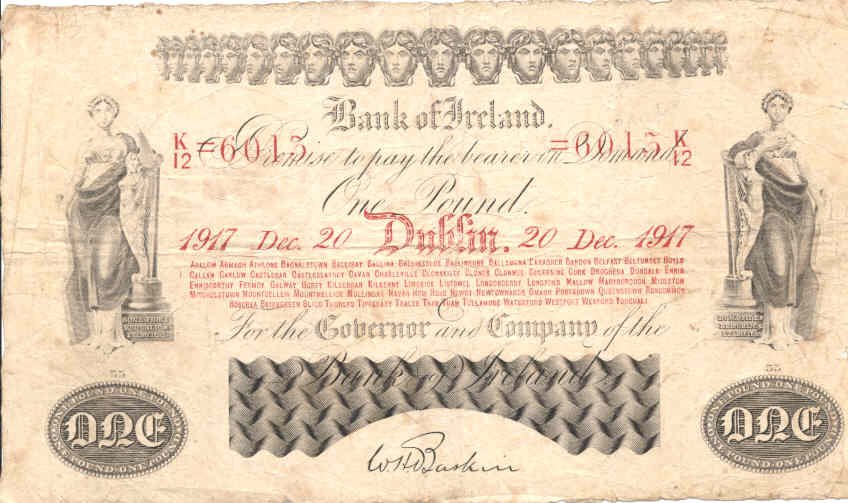 Bank of Ireland.
K/12 =6015 =6015 K/12
I Promise to pay the bearer on Demand
One Pound.
1917 Dec. 20 Dublin. 20 Dec. 1917
ARKLOW ARMAGH ATHLONE BAGNALSTOWN BALLINA BALLYMENA BANDON BELFAST BELTURBET BOYLE
CALLAN CARLOW CASTLEBAR CASTLEBLAYNEY CAVAN CHARLEVILLE CLONAKILTY CLONES CLONMEL COLERAINE CORK DROGHEDA DUNDALK ENNIS
ENNISCORTHY FERMOY GALWAY GOREY KILLORGLIN KILKENNY LIMERICK LISTOWEL LONDONDERRY LONGFORD MALLOW MARYBOROUGH MIDLETON
MITCHELSTOWN MOUNTBELLEW MOUNTMELLICK MULLINGAR NAVAN NEW ROSS NEWRY NEWTOWNARDS OMAGH PORTADOWN QUEENSTOWN ROSCOMMON
ROSCREA SKIBBEREEN SLIGO THURLES TIPPERARY TRALEE TRIM TUAM TULLAMORE WATERFORD WESTPORT WEXFORD YOUGHAL
For the Governor and Company of the
Bank of Ireland
55 55
ONE ONE
W H Baskin